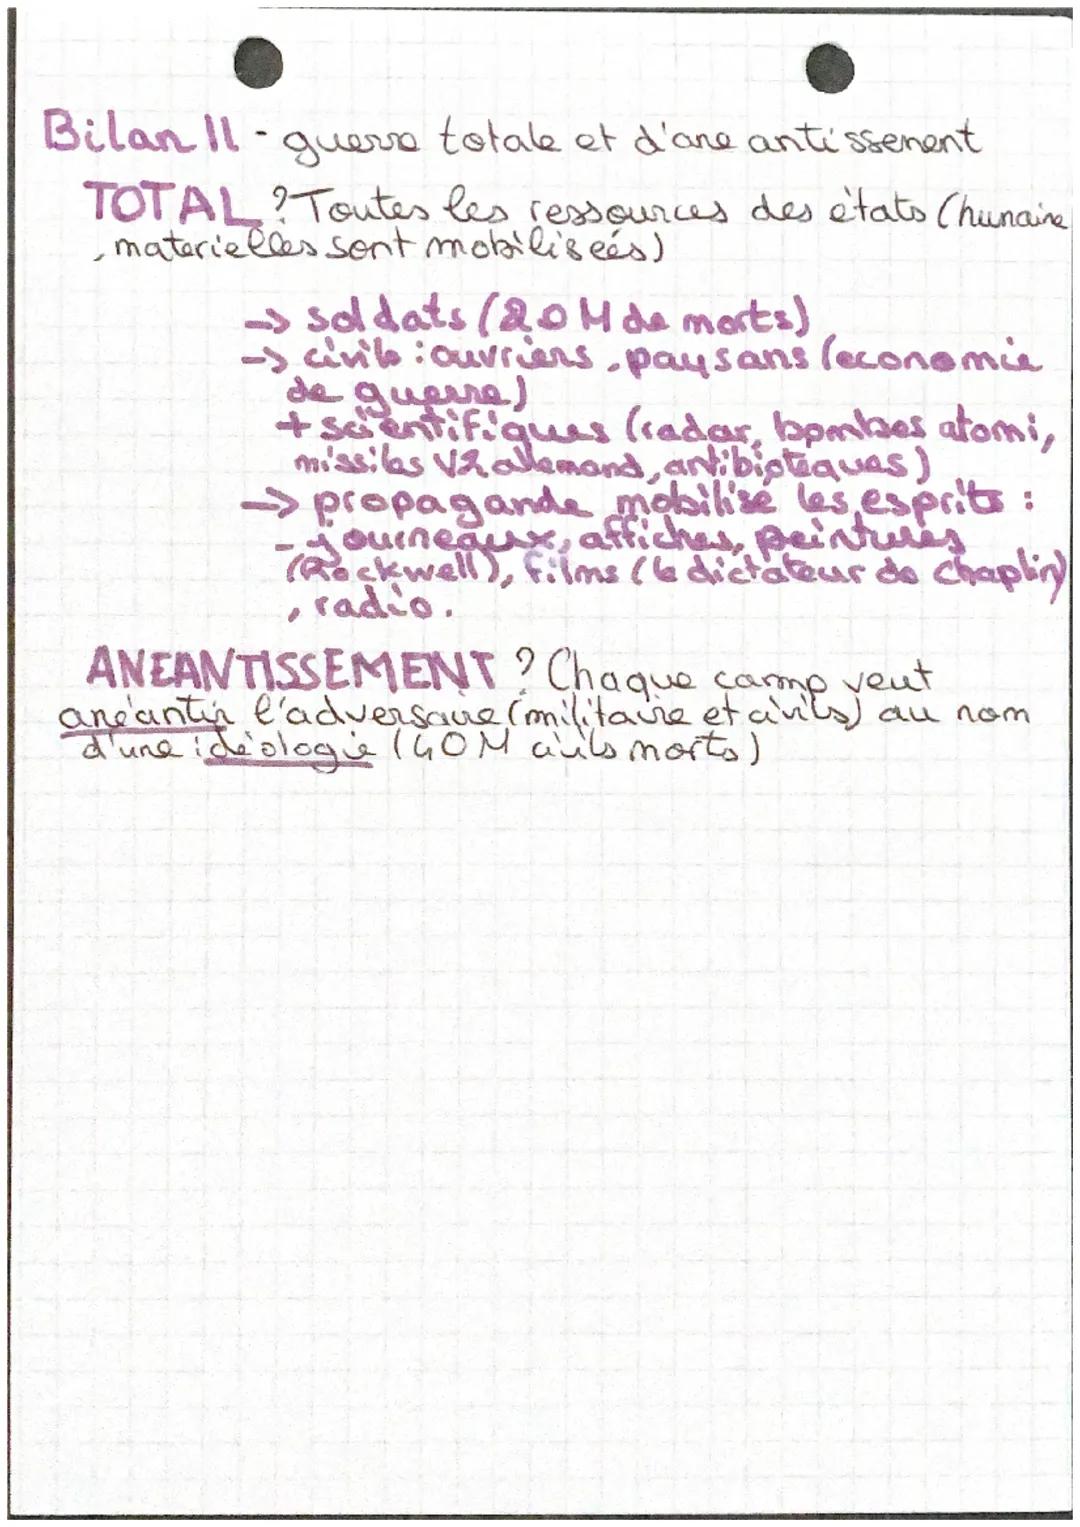 Bilan II - guerre totale et d'ane antissement
TOTAL ? Toutes les ressources des états (humaine
, materielles sont mobiliseés)
-> soldats (20M de morts)
-> civils : ouvriers, paysans (economie
de guerre)
+ scientifiques (radar, bombes atomi,
missiles V2 allemand, antibioteques)
-> propagande mobilise les esprits :
- journeaux, affiches, peintures
(Rockwell), films (le dictateur de chaplin)
, radio.
ANEANTISSEMENT ? Chaque camp veut
anéantir l'adversaire (militaire et civils) au nom
d'une idéologie (40M civils morts)